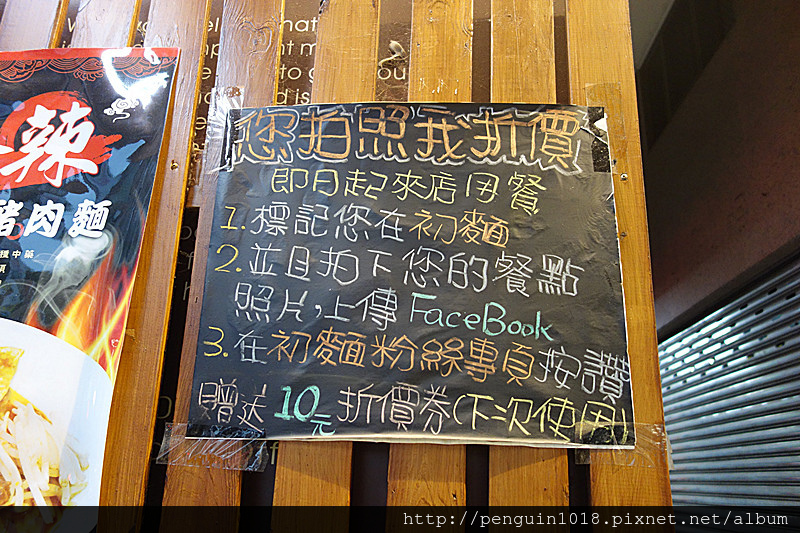 您拍照我折價
即日起來店用餐
1. 標記您在初麵
2. 並且拍下您的餐點
照片,上傳 FaceBook
3. 在初麵粉絲專頁按讚
贈送 10元 折價券(下次使用)
辣
豬肉麵
http://penguin1018.pixnet.net/album